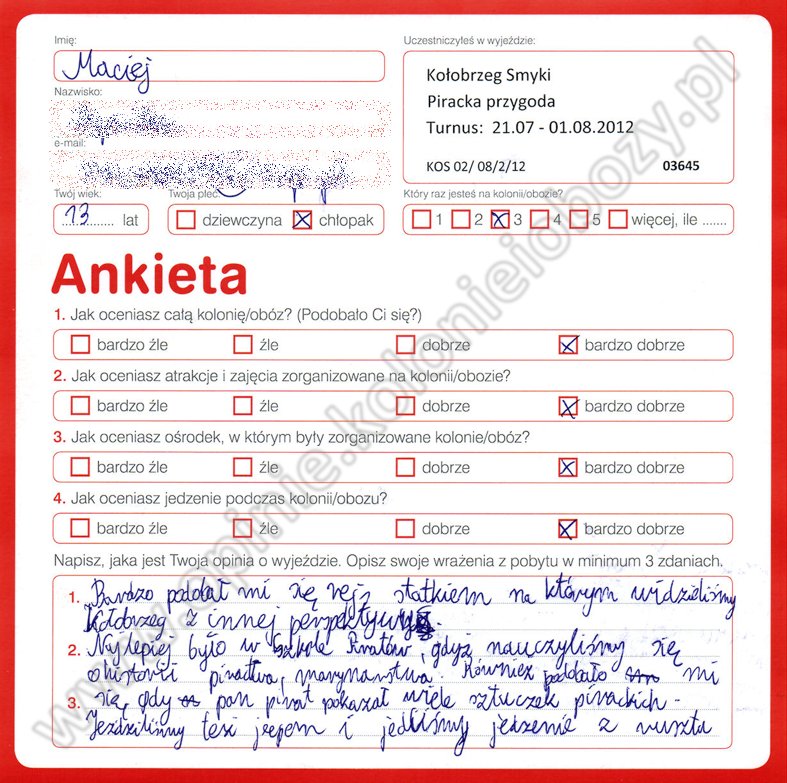 Imię:
Uczestniczyłeś w wyjeździe:
Maciej
Kołobrzeg Smyki
Piracka przygoda
Turnus: 21.07 - 01.08.2012
KOS 02/ 08/2/12 03645
Nazwisko:
e-mail:
Twój wiek:
Twoja płeć:
Który raz jesteś na kolonii/obozie?
13 lat
dziewczyna chłopak
1 2 3 4 5 więcej, ile .......
Ankieta
1. Jak oceniasz całą kolonię/obóz? (Podobało Ci się?)
bardzo źle źle dobrze bardzo dobrze
2. Jak oceniasz atrakcje i zajęcia zorganizowane na kolonii/obozie?
bardzo źle źle dobrze bardzo dobrze
3. Jak oceniasz ośrodek, w którym były zorganizowane kolonie/obóz?
bardzo źle źle dobrze bardzo dobrze
4. Jak oceniasz jedzenie podczas kolonii/obozu?
bardzo źle źle dobrze bardzo dobrze
Napisz, jaka jest Twoja opinia o wyjeździe. Opisz swoje wrażenia z pobytu w minimum 3 zdaniach.
1. Bardzo podobał mi się rejs statkiem na którym widzieliśmy
Kołobrzeg z innej perspektywy
2. Najlepiej było w Szkole Piratów, gdyż nauczyliśmy się
o historii piractwa, marynarstwa. Również podobało mi
3. się, gdy pan pirat pokazał wiele sztuczek pirackich.
Jeździliśmy też jeepem i jedliśmy jedzenie z ruszta
www.opinie.kolonieiobozy.pl